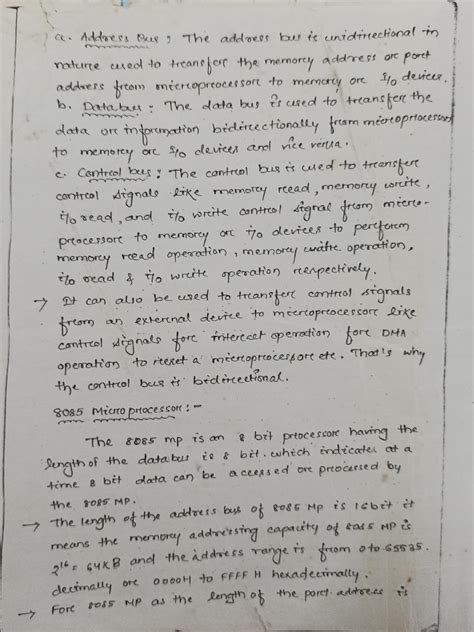 a. Address Bus : The address bus is unidirectional in
nature used to transfer the memory address or port
address from microprocessor to memory or I/O devices.
b. Data bus : The data bus is used to transfer the
data or information bidirectionally from microprocessor
to memory or I/O devices and vice versa.
c. Control bus : The control bus is used to transfer
control signals like memory read, memory write,
i/o read, and i/o write control signal from micro-
processor to memory or i/o devices to perform
memory read operation, memory write operation,
i/o read & i/o write operation respectively.
→ It can also be used to transfer control signals
from an external device to microprocessor like
control signals for operation for DMA
operation to reset a microprocessor etc. That's why
the control bus is bidirectional.
8085 Microprocessor :-
The 8085 mp is an 8 bit processor having the
length of the databus is 8 bit. which indicates at a
time 8 bit data can be accessed or processed by
the 8085 MP.
→ The length of the address bus of 8085 MP is 16 bit it
means the memory addressing capacity of 8085 MP is
2^16 = 64KB and the address range is from 0 to 65535.
decimally or 0000H to FFFF H hexadecimally.
→ For 8085 MP as the length of the port address is